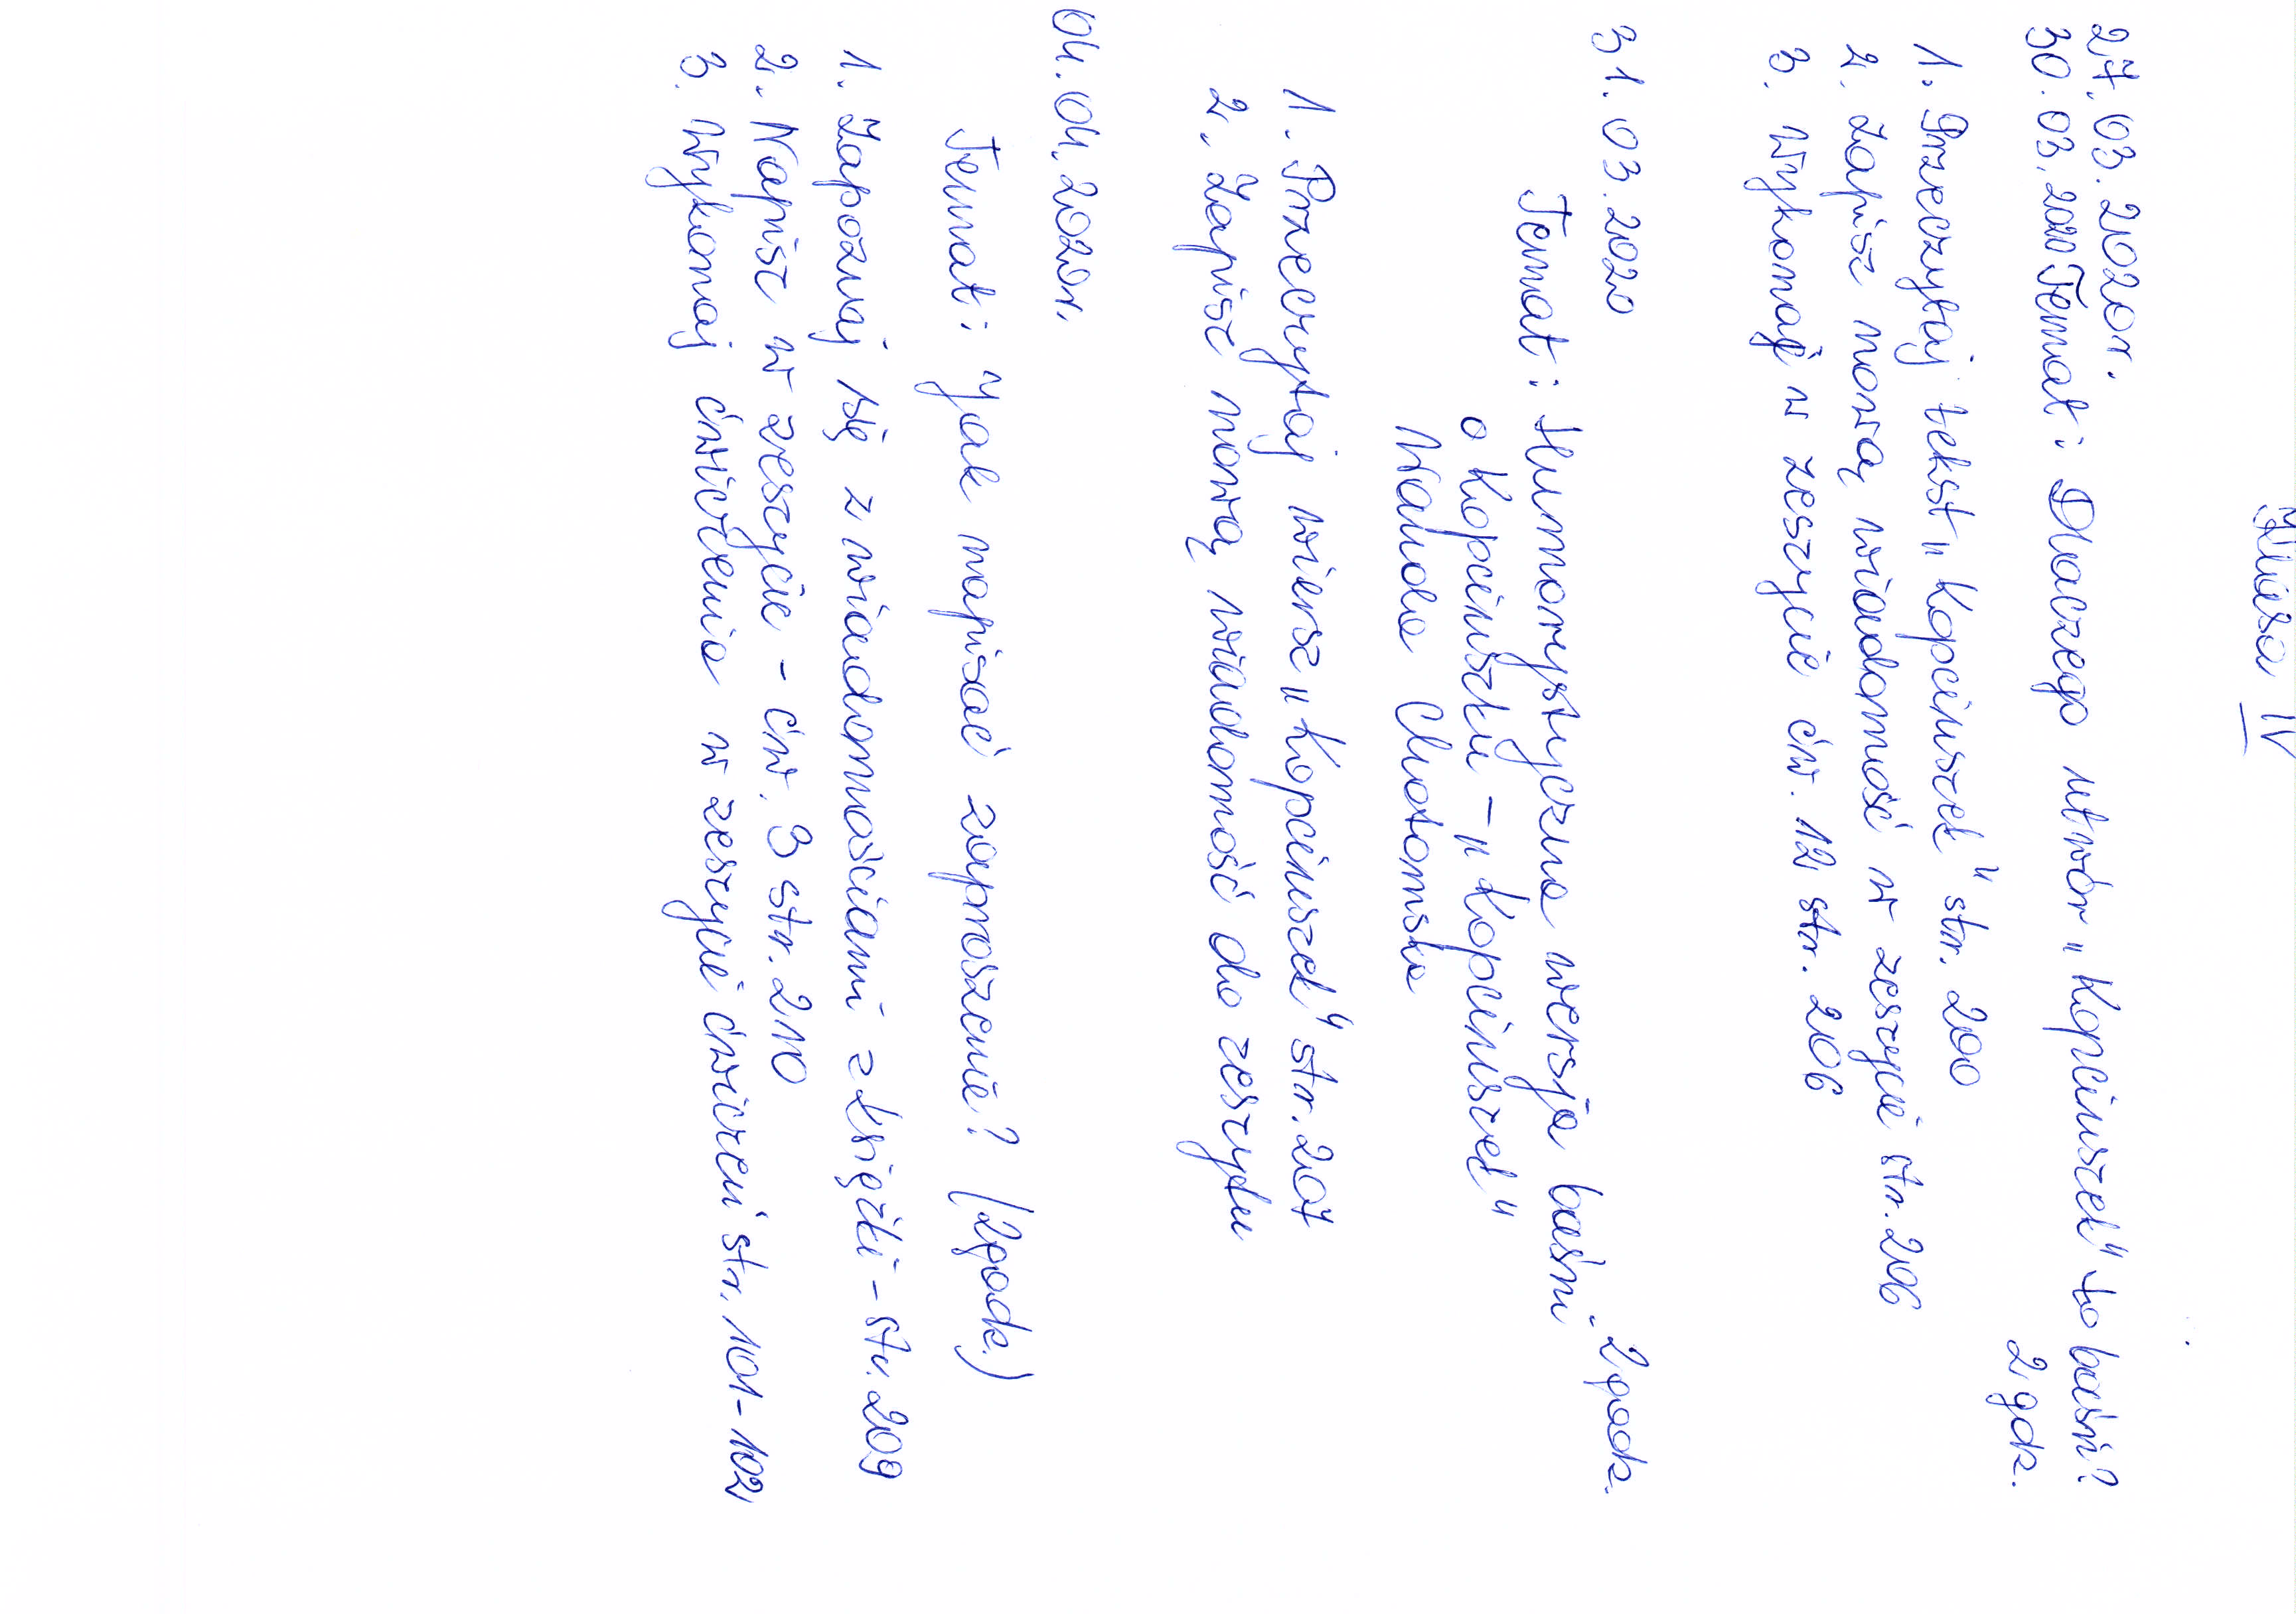 Klasa IV
27.03.2020r.
30.03.2020 Temat: Dlaczego utwór „Kopciuszek" to baśń?
2 gdz.
1. Przeczytaj tekst „Kopciuszek" str. 200
2. Zapisz nową wiadomość w zeszycie str. 206
3. Wykonaj w zeszycie ćw. 12 str. 206
31.03.2020
Temat: Humorystyczna wersja baśni
o Kopciuszku - „Kopciuszek"
Wanda Chotomska
2 godz.
1. Przeczytaj wiersz „Kopciuszek" str. 207
2. Zapisz nową wiadomość do zeszytu
01.04.2020r.
Temat: Jak napisać zaproszenie? (2godz.)
1. Zapoznaj się z wiadomościami z książki - str. 209
2. Napisz w zeszycie - ćw. 3 str. 210
3. Wykonaj ćwiczenia w zeszycie ćwiczeń str. 101-102